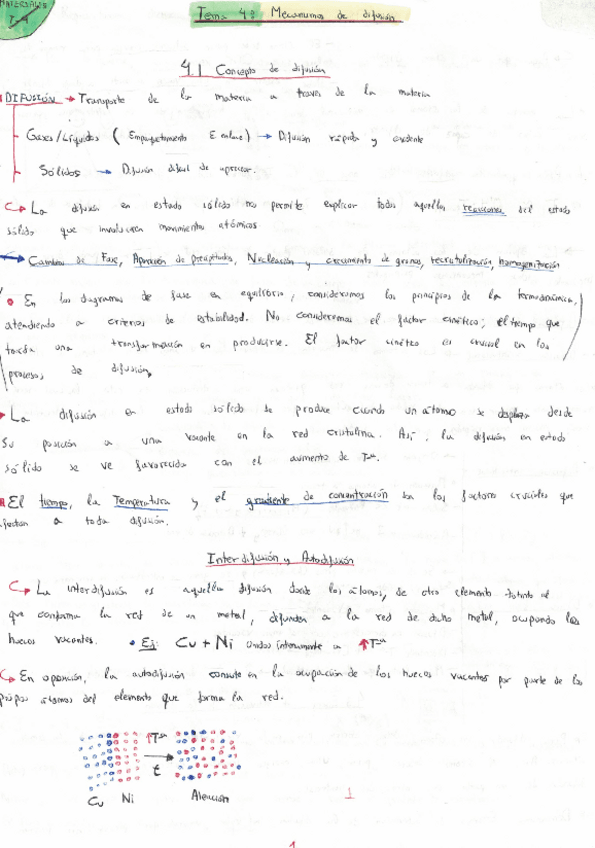 MATERIALES
T-4
Tema 4: Mecanismos de difusión
4.1 Concepto de difusión
DIFUSIÓN → Transporte de la materia a través de la materia
Gases/Líquidos ( Empaquetamiento E enlace) → Difusión rápida y evidente
Sólidos → Difusión difícil de apreciar.
La difusión en estado sólido nos permite explicar todas aquellas reacciones del estado
sólido que involucran movimientos atómicos
Cambios de Fase, Aparición de precipitados, Nucleación y crecimiento de granos, recristalización, homogenización
En los diagramas de fase en equilibrio, consideramos los principios de la termodinámica,
atendiendo a criterios de estabilidad. No consideremos el factor cinético; el tiempo que
tarda una transformación en producirse. El factor cinético es crucial en los
procesos de difusión,
La difusión en estado sólido se produce cuando un átomo se desplaza desde
su posición a una vacante en la red cristalina. Así, la difusión en estado
sólido se ve favorecida con el aumento de Tª.
El tiempo, la Temperatura y el gradiente de concentración son los factores cruciales que
afectan a toda difusión.
Interdifusión y Autodifusión
La interdifusión es aquella difusión donde los átomos, de otro elemento distinto al
que conforma la red de un metal, difunden a la red de dicho metal, ocupando los
huecos vacantes. • Ej: Cu + Ni unidos íntimamente a ↑Tª
En oposición, la autodifusión consiste en la ocupación de los huecos vacantes por parte de los
propios átomos del elemento que forma la red.
↑Tª
t
Cu Ni Aleación
1
1